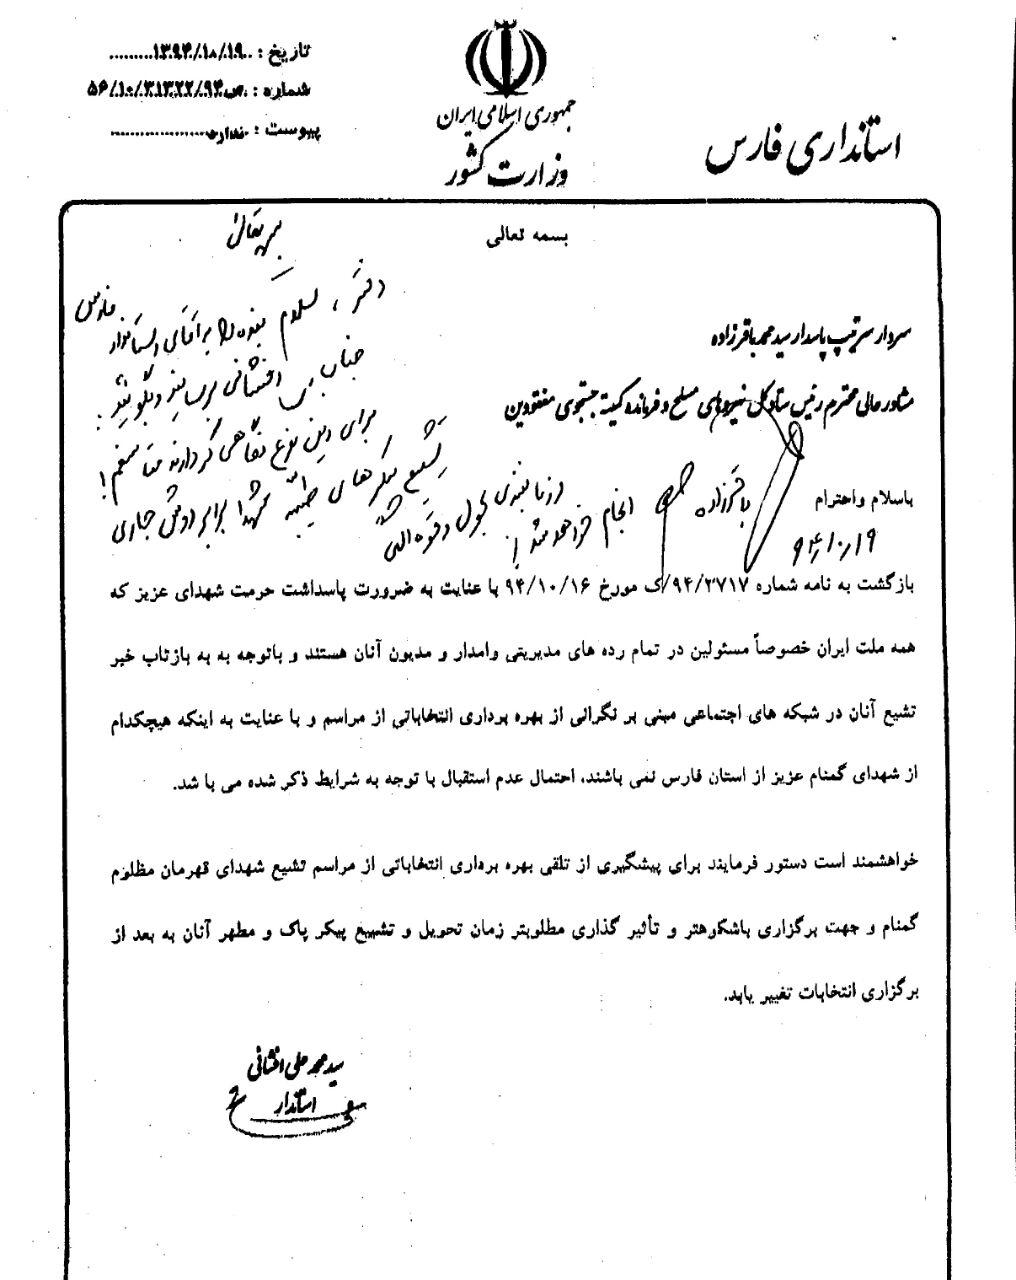 تاریخ : ۱۳۹۴/۱۰/۱۹
شماره : ص۵۶/۱۰/۳۱۳۲۲/۹۴
پیوست : ندارد
جمهوری اسلامی ایران
وزارت کشور
استانداری فارس
بسمه تعالی
بسمه تعالی
دفتر ، سلام بنده را به آقای استاندار فارس
جناب افشانی برسانید و بگوئید :
برای این نوع نگاهی که دارند متأسفم !
تشییع پیکرهای طیبه شهدا برابر روش جاری
و زمانبندی بحول و قوه الهی
انجام خواهد شد !
باقرزاده
۹۴/۱۰/۱۹
سردار سرتیپ پاسدار سید محمد باقرزاده
مشاور عالی محترم رئیس ستاد کل نیروهای مسلح و فرمانده کمیته جستجوی مفقودین
باسلام واحترام
بازگشت به نامه شماره ۹۴/۲۷۱۷/ک مورخ ۹۴/۱۰/۱۶ با عنایت به ضرورت پاسداشت حرمت شهدای عزیز که
همه ملت ایران خصوصاً مسئولین در تمام رده های مدیریتی وامدار و مدیون آنان هستند و باتوجه به به بازتاب خبر
تشیع آنان در شبکه های اجتماعی مبنی بر نگرانی از بهره برداری انتخاباتی از مراسم و با عنایت به اینکه هیچکدام
از شهدای گمنام عزیز از استان فارس نمی باشند، احتمال عدم استقبال با توجه به شرایط ذکر شده می با شد.
خواهشمند است دستور فرمایند برای پیشگیری از تلقی بهره برداری انتخاباتی از مراسم تشیع شهدای قهرمان مظلوم
گمنام و جهت برگزاری باشکوهتر و تأثیر گذاری مطلوبتر زمان تحویل و تشییع پیکر پاک و مطهر آنان به بعد از
برگزاری انتخابات تغییر یابد.
سید محمد علی افشانی
استاندار